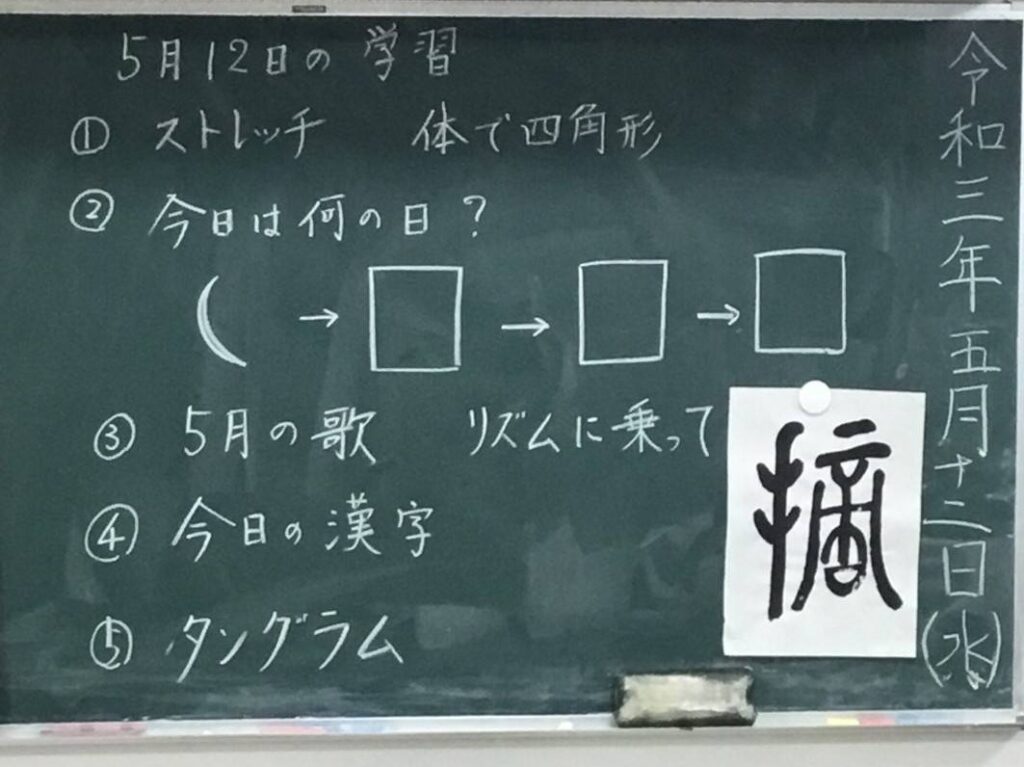 5月12日の学習
① ストレッチ 体で四角形
② 今日は何の日?
→ → →
③ 5月の歌 リズムに乗って
④ 今日の漢字
⑤ タングラム
摘
令和三年五月十二日(水)